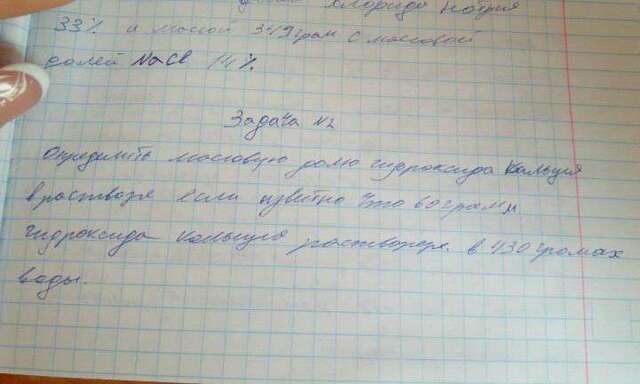 хлорида натрия
33% и массой 349 грам с массовой
долей NaCl 14%
Задача №2
Определить массовую долю гидроксида Кальция
в растворе если извитно что 60 грамм
гидроксида Кальция растворере в 430 громах
воды.